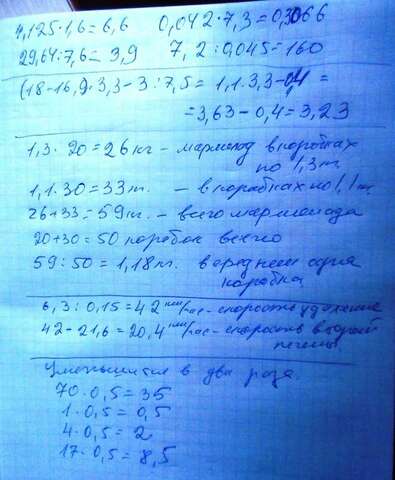 4,125·1,6=6,6 0,042·7,3=0,3066
29,64:7,6=3,9 7,2:0,045=160
(18-16,9)·3,3-3:7,5=1,1·3,3-0,4=
=3,63-0,4=3,23
1,3·20=26кг - мармелад в коробках
по 1,3т.
1,1·30=33т. - в коробках по 1,1т.
26+33=59кг. - всего мармелада
20+30=50 коробок всего
59:50=1,18т. в среднем одна
коробка
6,3:0,15=42км/час - скорость удаления
42-21,6=20,4км/час - скорость второй
Уменьшится в два раза.
70·0,5=35
1·0,5=0,5
4·0,5=2
17·0,5=8,5